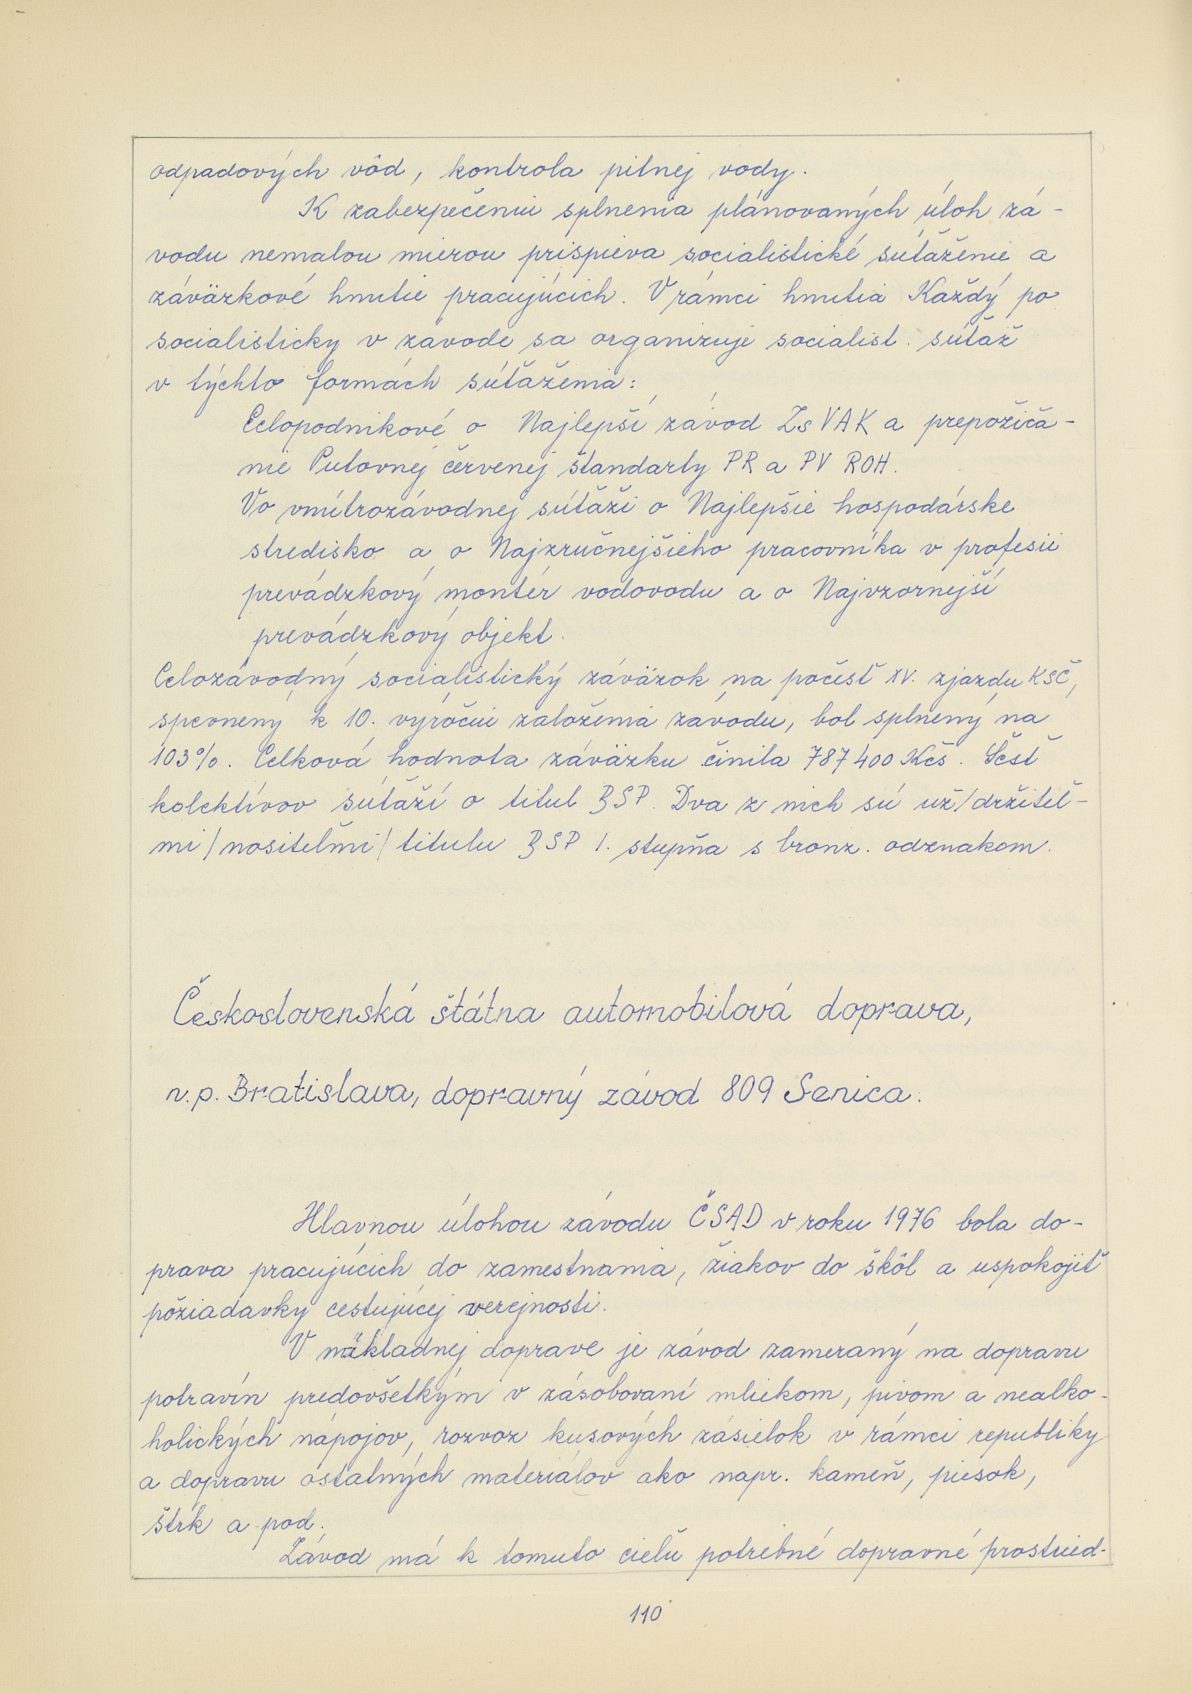 odpadových vôd, kontrola pitnej vody.
K zabezpečeniu splnenia plánovaných úloh zá-
vodu nemalou mierou prispieva socialistické súťaženie a
záväzkové hnutie pracujúcich. V rámci hnutia Každý po
socialisticky v závode sa organizuje socialist. súťaž
v týchto formách súťaženia:
Celopodnikové o Najlepší závod ZsVAK a prepožiča-
nie Putovnej červenej štandarty PR a PV ROH.
Vo vnútrozávodnej súťaži o Najlepšie hospodárske
stredisko a o Najzručnejšieho pracovníka v profesii
prevádzkový montér vodovodu a o Najvzornejší
prevádzkový objekt.
Celozávodný socialistický záväzok na počesť XV. zjazdu KSČ,
spevnený k 10. výročiu založenia závodu, bol splnený na
103%. Celková hodnota záväzku činila 787 400 Kčs. Šesť
kolektívov súťaží o titul BSP. Dva z nich sú už /držiteľ-
mi/ nositeľmi/ titulu BSP I. stupňa s bronz. odznakom.
Československá štátna automobilová doprava,
n.p. Bratislava, dopravný závod 809 Senica.
Hlavnou úlohou závodu ČSAD v roku 1976 bola do-
prava pracujúcich do zamestnania, žiakov do škôl a uspokojiť
požiadavky cestujúcej verejnosti.
V nákladnej doprave je závod zameraný na dopravu
potravín predovšetkým v zásobovaní mliekom, pivom a nealko-
holických nápojov, rozvoz kusových zásielok v rámci republiky
a dopravu ostatných materiálov ako napr. kameň, piesok,
štrk a pod.
Závod má k tomuto cieľu potrebné dopravné prostried-
110